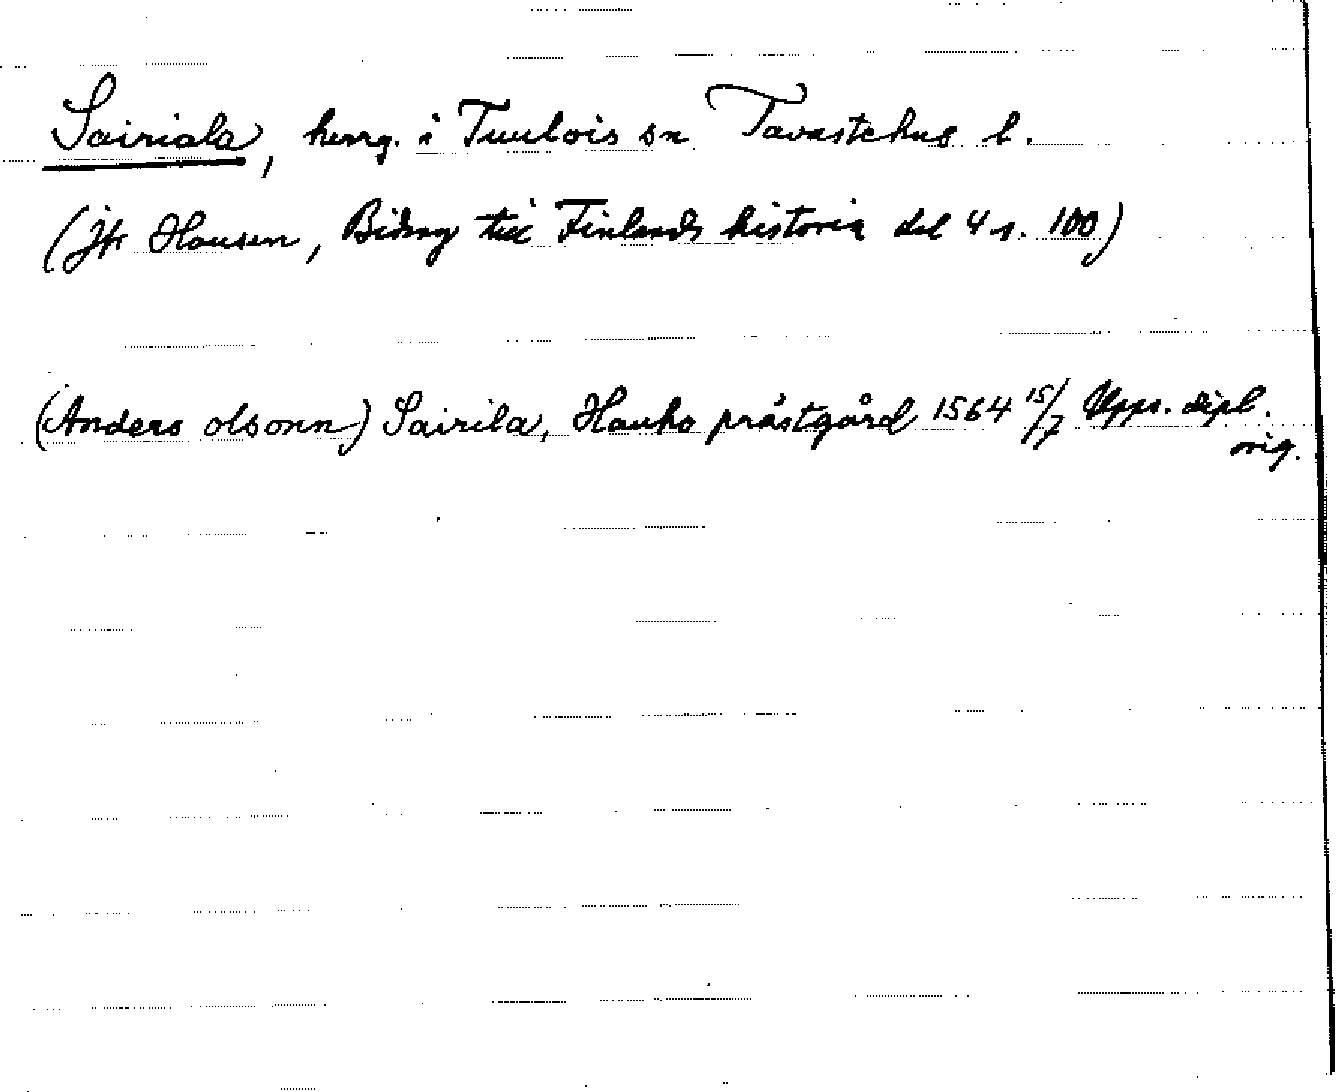 Sairiala, herrg. i Tuulois sn Tavastehus l.
(Jfr Hausen, Bidrag till Finlands historia del 4 s. 100)
(Anders olsonn) Sairila, Hauho prästgård 1564 15/7 Upps. dipl.
orig.